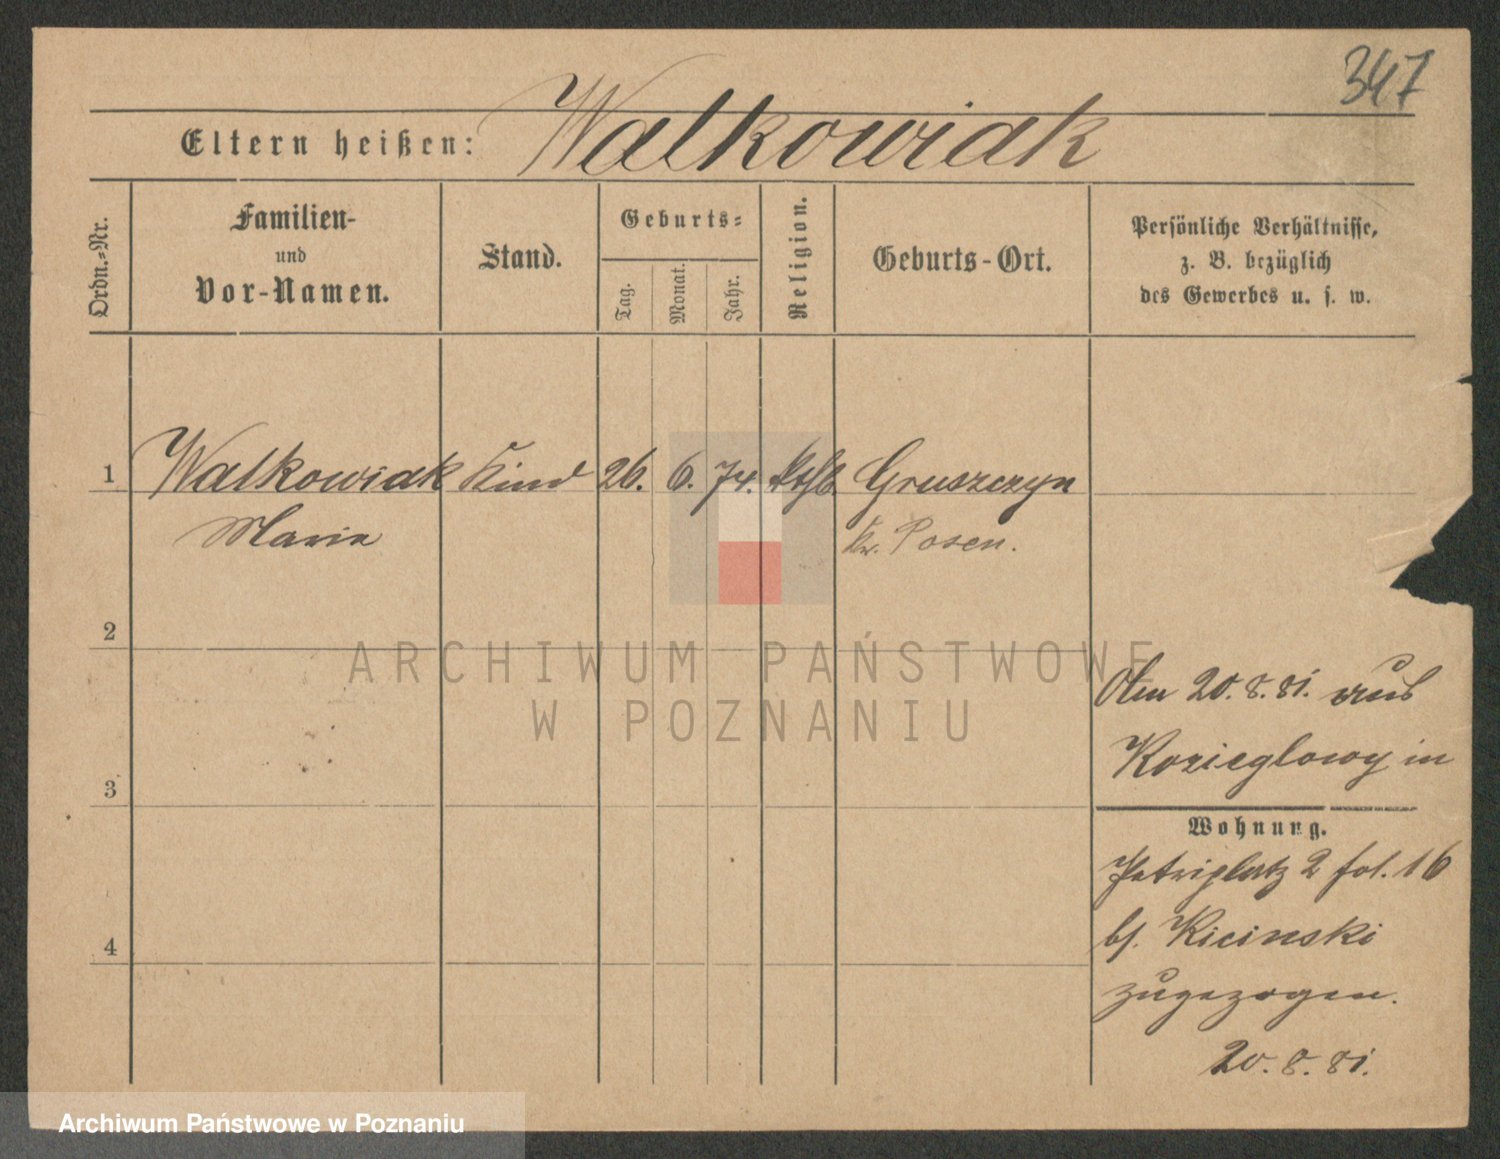 347
Eltern heißen: Walkowiak
Ordn.-Nr.
Familien-
und
Vor-Namen.
Stand.
Geburts-
Tag.
Monat.
Jahr.
Religion.
Geburts-Ort.
Persönliche Verhältnisse,
z. B. bezüglich
des Gewerbes u. s. w.
1 Walkowiak Kind 26. 6. 74. kthl. Gruszczyn
Marie Kr. Posen.
2
ARCHIWUM PAŃSTWOWE
W POZNANIU
Am 20.8.81. aus
Kozieglowy in
3
Wohnung.
Petriplatz 2 fol. 16
bj. Kicinski
4
zugezogen.
20.8.81.
Archiwum Państwowe w Poznaniu